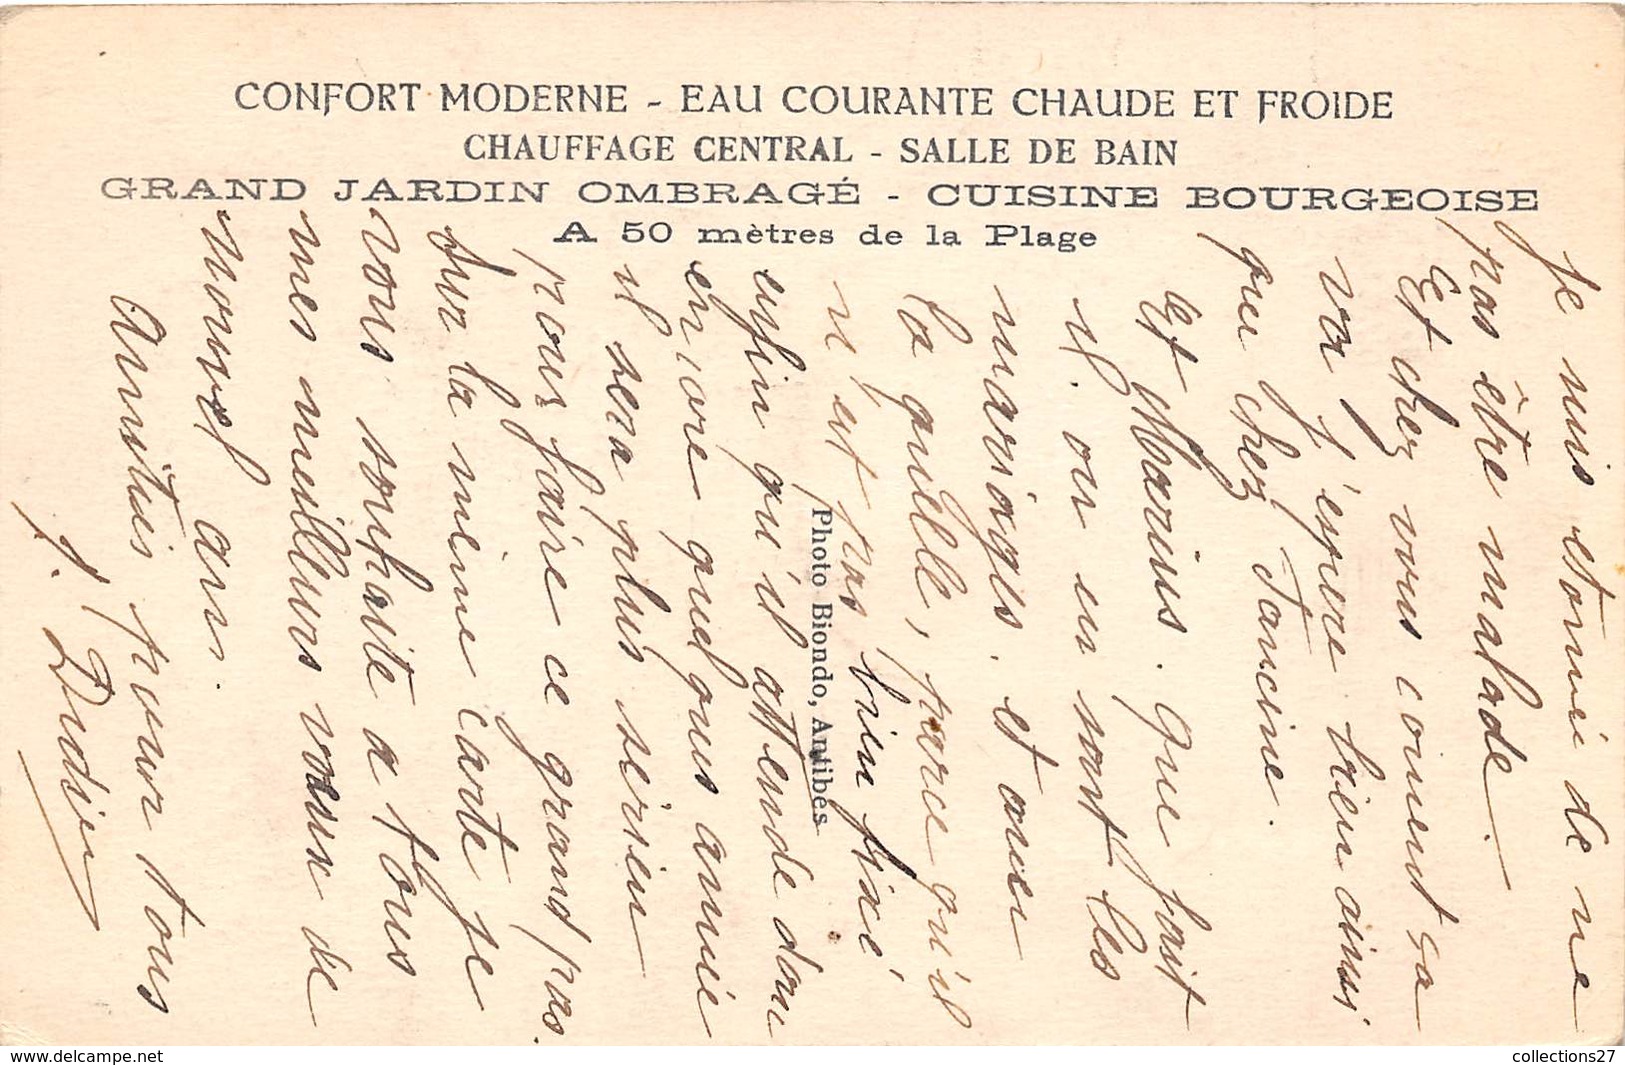 CONFORT MODERNE - EAU COURANTE CHAUDE ET FROIDE
CHAUFFAGE CENTRAL - SALLE DE BAIN
GRAND JARDIN OMBRAGÉ - CUISINE BOURGEOISE
A 50 mètres de la Plage
Je suis etonné de ne
pas être malade.
Et chez vous coment ça
va j'espere bien ainsi
que chez Francine.
et Marius. que fait
il. ou en sont les
mariages. et avec
la quille, parce qu'il
n'est pas bien fixé
enfin qu'il attende dans
encore quelques année
il sera plus serieu
pour faire ce grand pas.
sur la même carte je
vous souhaite a tous
mes meilleurs vœux de
nouvel an.
Amitiés pour tous
Photo Biondo, Antibes
collections27
delcampe.net